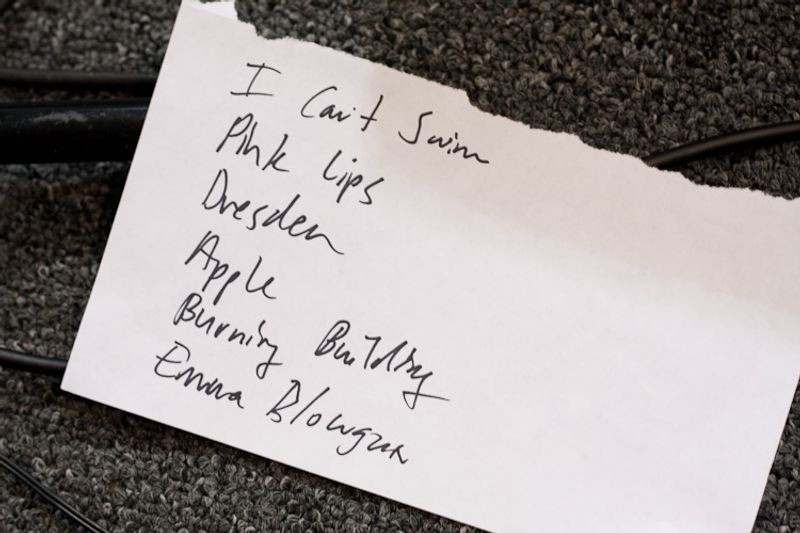 I Can't Swim
Pink Lips
Dresden
Apple
Burning Building
Emma Blowgun